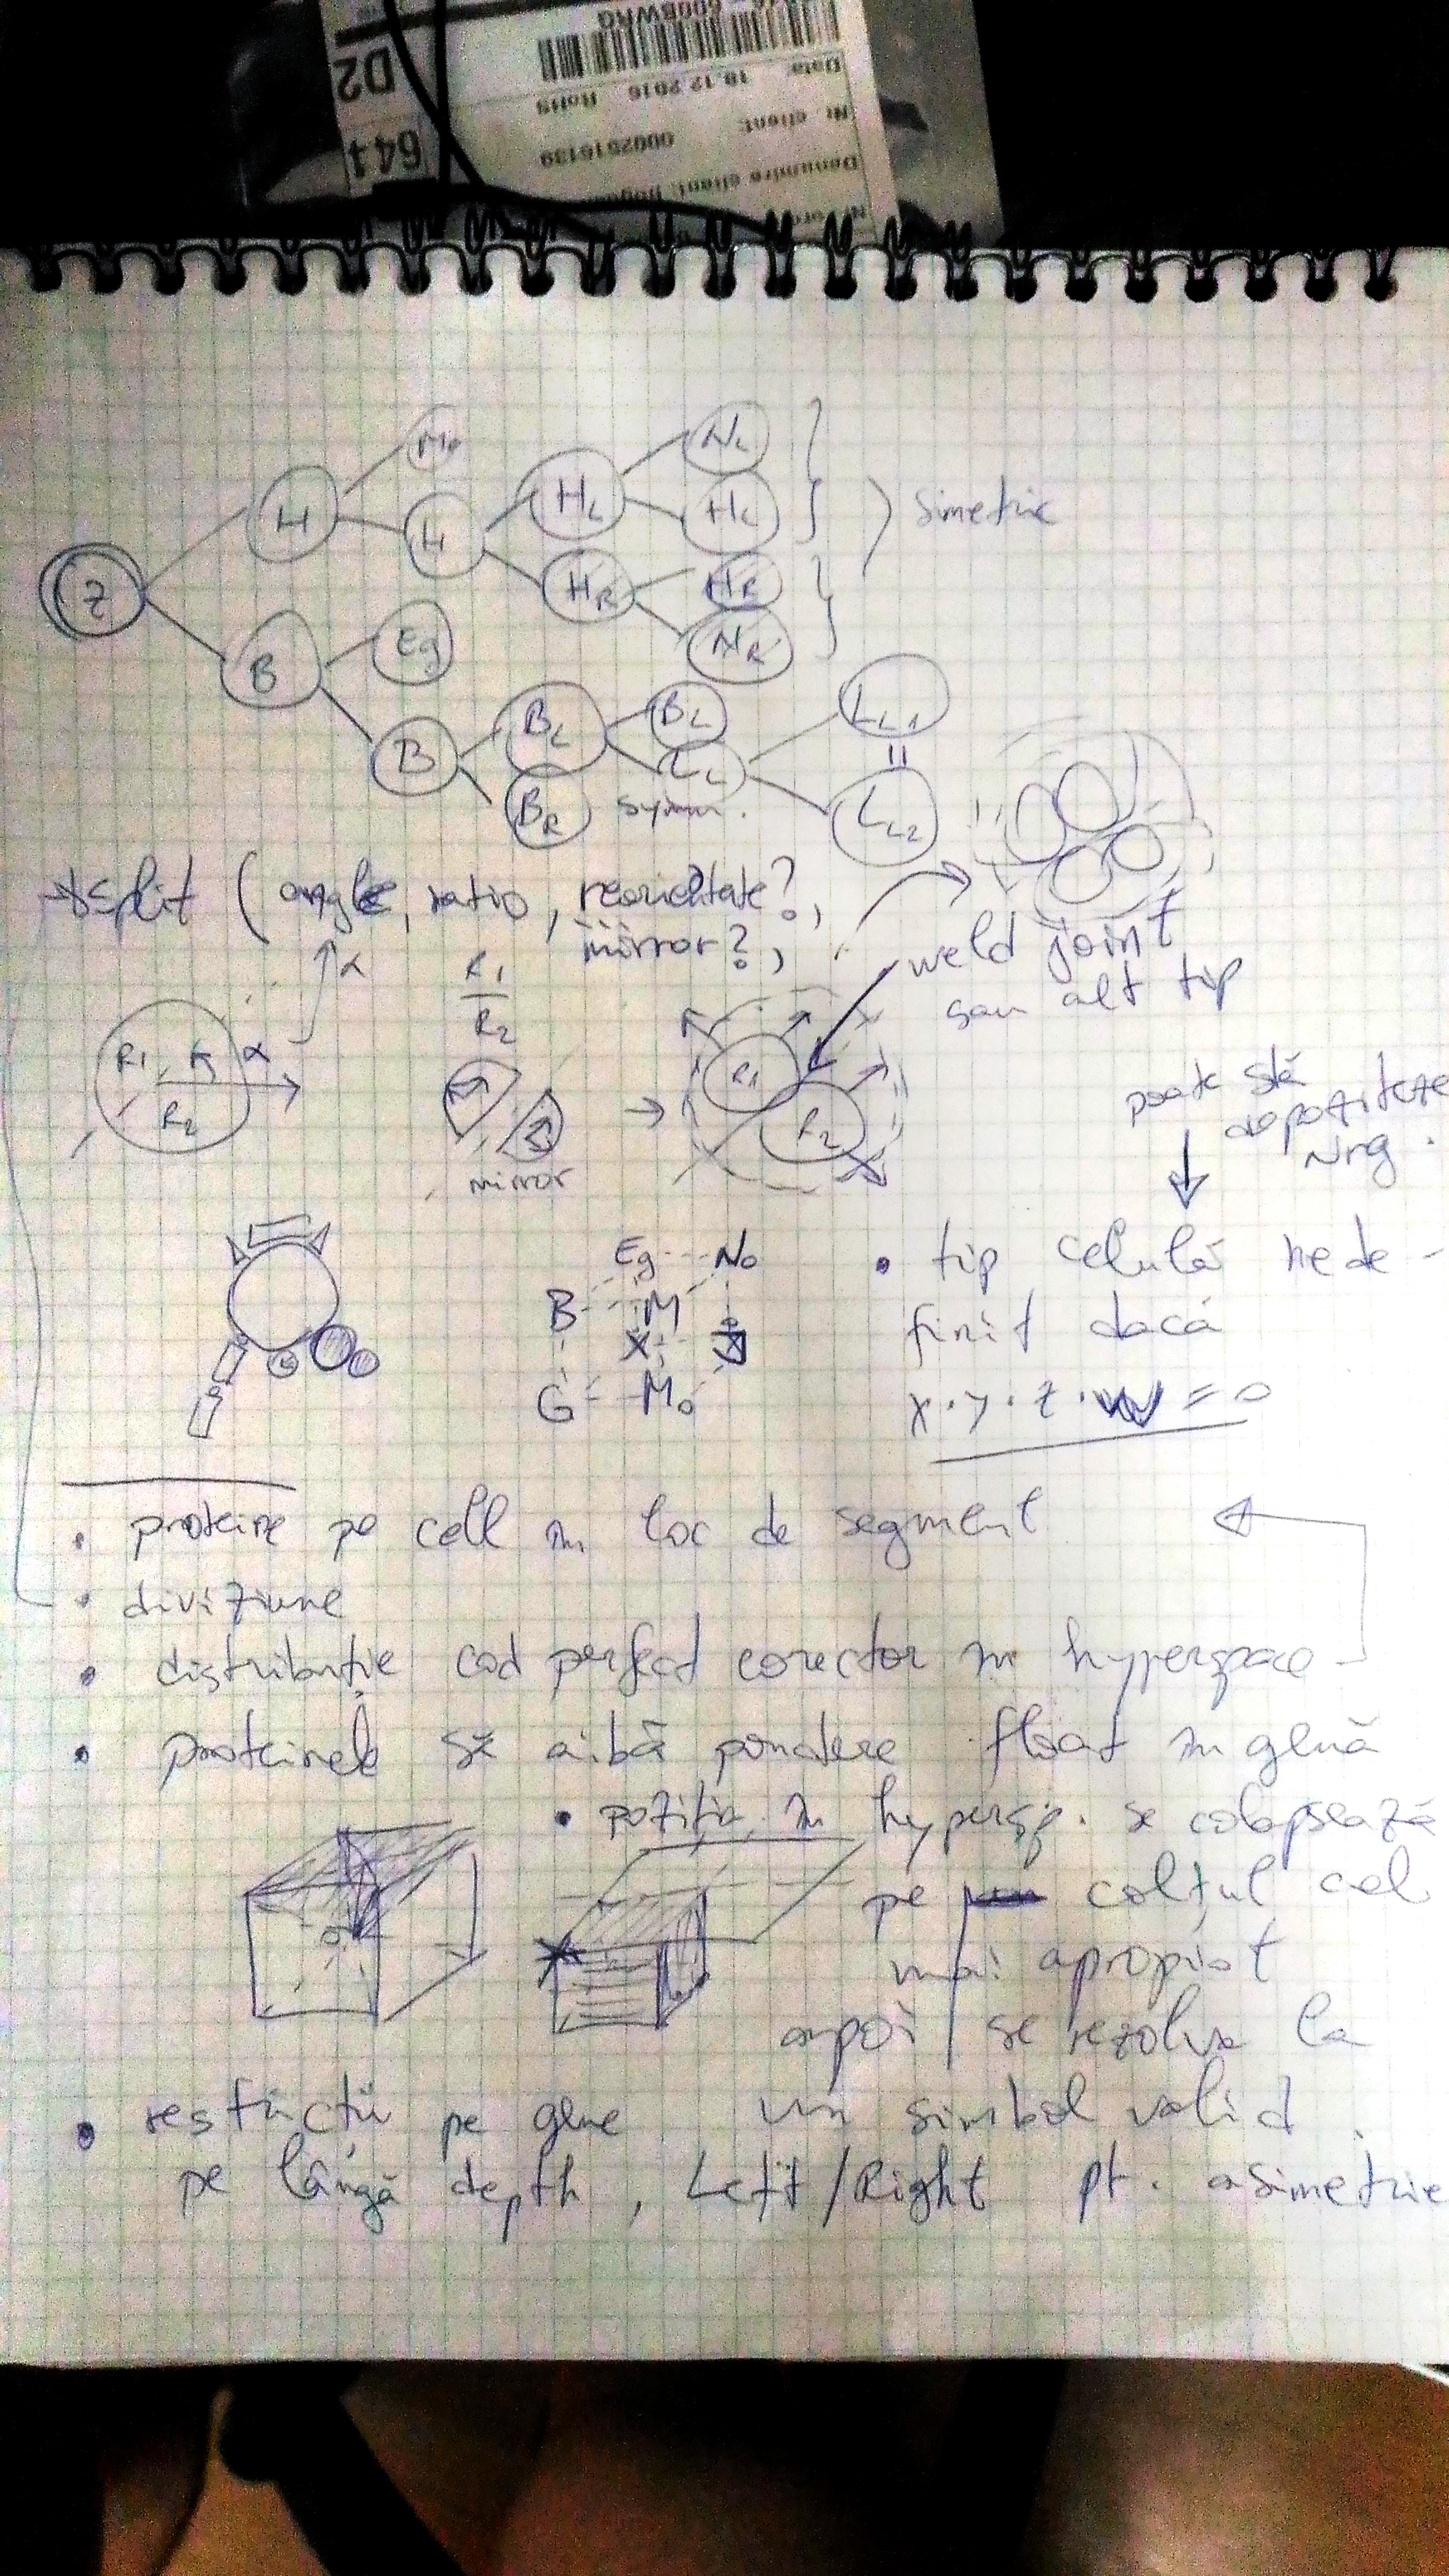 D2
641
Data: 19.12.2016 RoHS
Nr. client: 0002516139
Denumire client:
Mo
N_L
H
H
H_L
H_L
simetric
Z
H_R
H_R
N_R
B
Eg
B
B_L
B_L
L_L
L_L1
=
L_L2
B_R
symm.
split (angle, ratio, reorientate?,
mirror?,
α
R1
R2
weld joint
sau alt tip
R1 α
R2
mirror
R1
R2
poate să
depoziteze
Nrg.
Eg No
B M
X
G Mo
• tip celulă nede-
finit dacă
x·y·z·w = 0
• proteine pe cell în loc de segment
• diviziune
• distribuție cod perfect corector în hyperspace
• proteinele să aibă pondere float în genă
• poziția în hypersp. se colapsează
pe colțul cel
mai apropiat
apoi se rezolva la
un simbol valid
• restricții pe gene
pe lângă depth, Left/Right pt. asimetrie